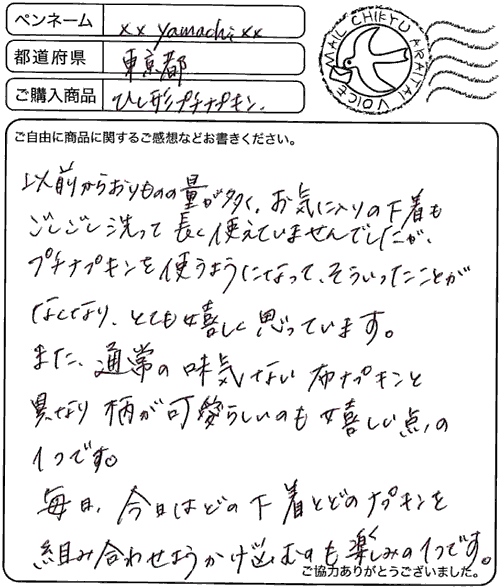 ペンネーム xx yamachi xx
MAIL CHIKYU ARAITAI VOICE
都道府県 東京都
ご購入商品 ひし形プチナプキン.
ご自由に商品に関するご感想などお書きください。
以前からおりものの量が多く、お気に入りの下着も
ごしごし洗って長く使えていませんでしたが、
プチナプキンを使うようになって、そういったことが
なくなり、とても嬉しく思っています。
また、通常の味気ない布ナプキンと
異なり柄が可愛らしいのも嬉しい点の
1つです。
毎日、今日はどの下着とどのナプキンを
組み合わせようか悩むのも楽しみの1つです。
ご協力ありがとうございました。